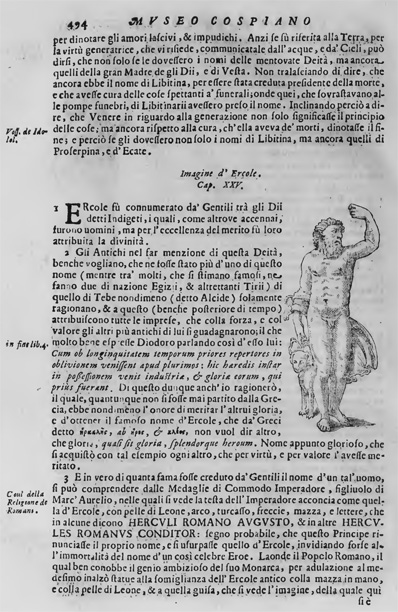 494 MVSEO COSPIANO
per dinotare gli amori lascivi, & impudichi. Anzi se fù riferita alla Terra, per
la virtù generatrice, che vi risiede, communicatale dall'acque, e da' Cieli, può
dirsi, che non solo se le dovessero i nomi delle mentovate Deità, ma ancora
quelli della gran Madre de gli Dii, e di Vesta. Non tralasciando di dire, che
ancora ebbe il nome di Libitina, per essere stata creduta presidente della morte,
e che avesse cura delle cose spettanti a' funerali; onde quei, che sovrastavano al-
le pompe funebri, di Libitinarii avessero preso il nome. Inclinando perciò a di-
re, che Venere in riguardo alla generazione non solo significasse il principio
delle cose; ma ancora rispetto alla cura, ch'ella aveva de' morti, dinotasse il fi-
ne; e perciò se gli dovessero non solo i nomi di Libitina, ma ancora quelli di
Proserpina, e d'Ecate.
Voss. de Ido-
lol.
Imagine d' Ercole.
Cap. XXV.
1 ERcole fù connumerato da' Gentili trà gli Dii
detti Indigeti, i quali, come altrove accennai,
furono uomini, ma per l'eccellenza del merito fù loro
attribuita la divinità.
2 Gli Antichi nel far menzione di questa Deità,
benche vogliano, che ne fosse stato più d'uno di questo
nome (mentre tra' molti, che si stimano famosi, ne
fanno due di nazione Egizii, & altrettanti Tirii) di
quello di Tebe nondimeno (detto Alcide) solamente
ragionano, & a questo (benche posteriore di tempo)
attribuiscono tutte le imprese, che colla forza, e col
valore gli altri più antichi di lui si guadagnarono; il che
molto bene espresse Diodoro parlando così d'esso lui:
in fine lib. 4.
Cum ob longinquitatem temporum priores repertores in
oblivionem venissent apud plurimos; hic hæredis instar
in possessionem venit industriæ, & gloriæ eorum, qui
prius fuerant. Di questo dunque anch'io ragionerò,
il quale, quantunque non si fosse mai partito dalla Gre-
cia, ebbe nondimeno l'onore di meritar l'altrui gloria,
e d'ottener il famoso nome d'Ercole, che da' Greci
detto non vuol dir altro,
che gloria, quasi sit gloria, splendorque heroum. Nome appunto glorioso, che
si acquistò con tal esempio ogni altro, che per virtù, e per valore l'avesse me-
ritato.
3 E in vero di quanta fama fosse creduto da' Gentili il nome d'un tal'uomo,
si può comprendere dalle Medaglie di Commodo Imperadore, figliuolo di
Marc'Aurelio, nelle quali si vede la testa dell'Imperadore acconcia come quel-
la d'Ercole, con pelle di Leone, arco, turcasso, freccie, mazza, e lettere, che
in alcune dicono HERCVLI ROMANO AVGVSTO, & in altre HERCV-
LES ROMANVS CONDITOR: segno probabile, che questo Principe ri-
nunciasse il proprio nome, e si usurpasse quello d'Ercole, invidiando forse al-
l'immortalità del nome d'un così celebre Eroe. Laonde il Popolo Romano, il
qual ben conobbe il genio ambizioso del suo Monarca, per adulazione al me-
desimo inalzò statue alla somiglianza dell'Ercole antico colla mazza in mano,
e colla pelle di Leone, & a quella guisa, che si vede l'imagine, della quale quì
Coul della
Religione de
Romani.
si è